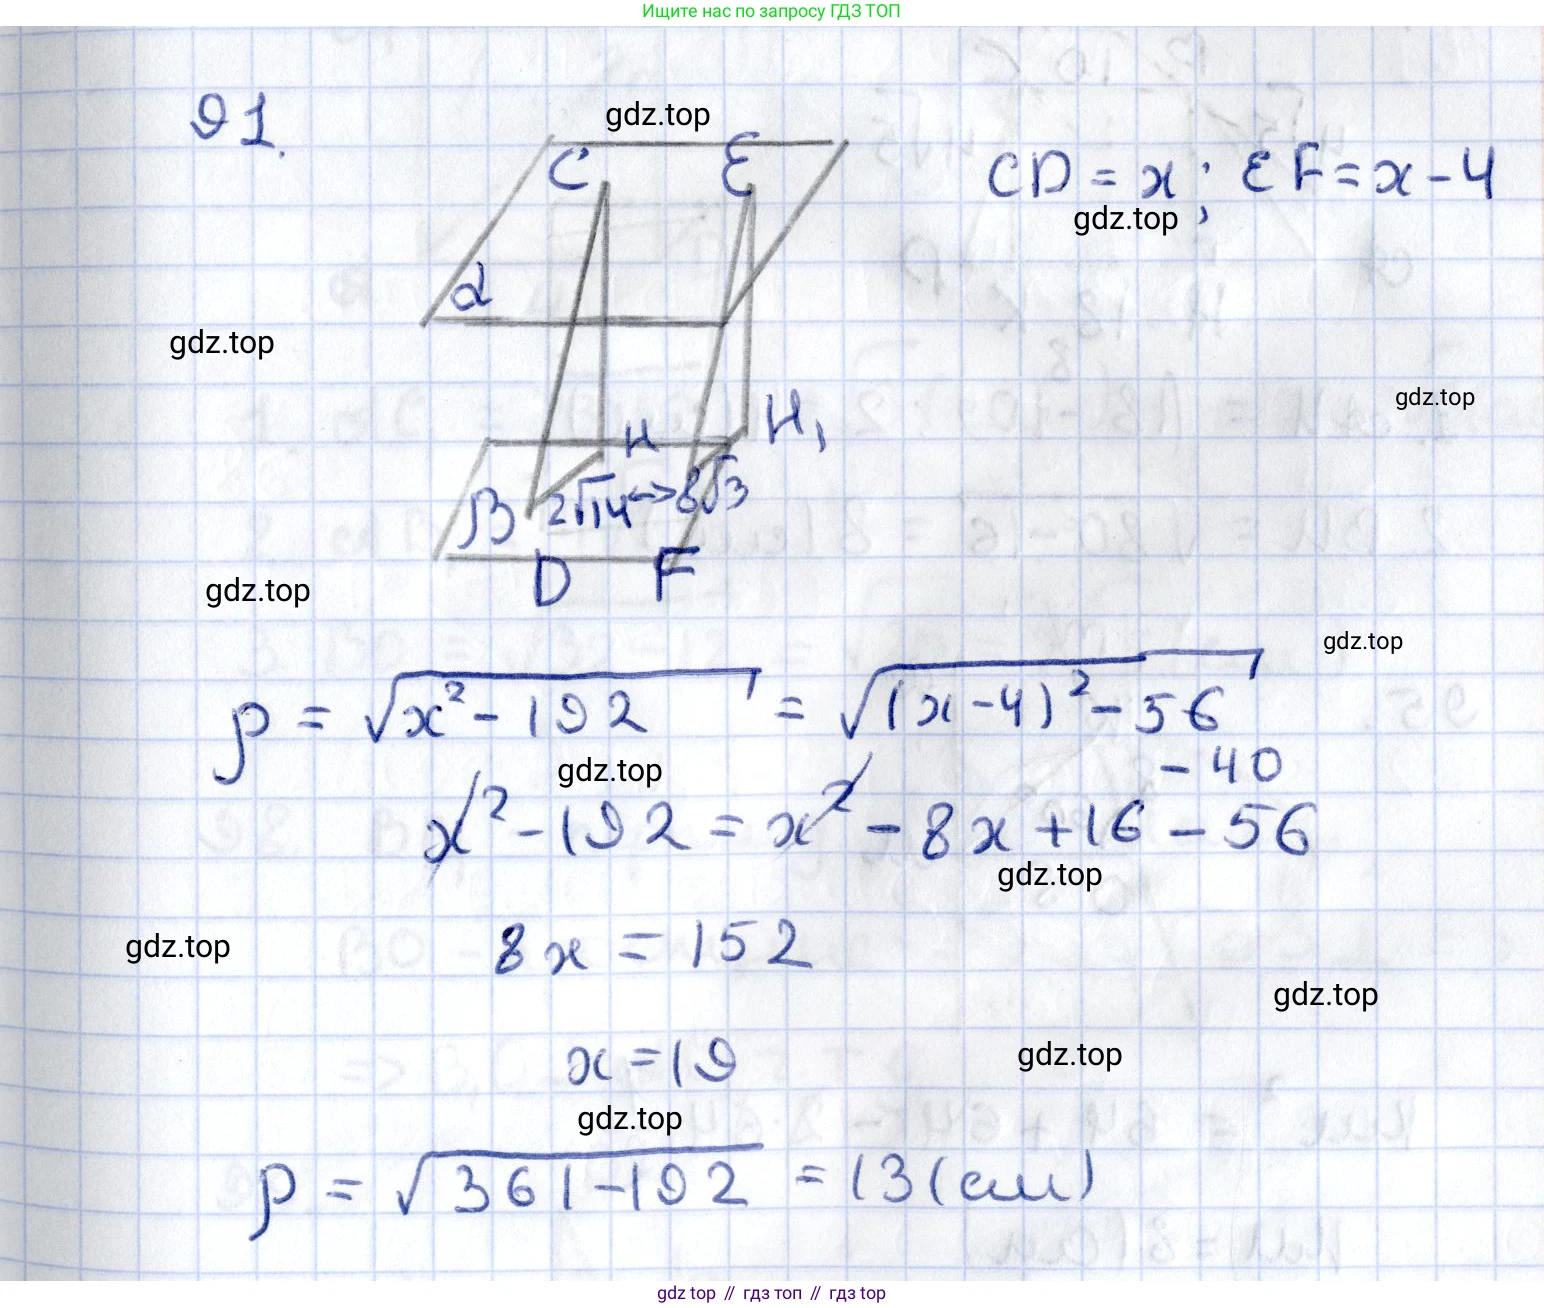 Ищите нас по запросу ГДЗ ТОП
91.
gdz.top
C E
CD = x; EF = x - 4
gdz.top
α
gdz.top
gdz.top
H H₁
β 2√14 <-> 8√3
D F
gdz.top
gdz.top
ρ = √(x² - 192) = √((x - 4)² - 56)
gdz.top
- 40
x² - 192 = x² - 8x + 16 - 56
gdz.top
gdz.top
8x = 152
gdz.top
x = 19
gdz.top
gdz.top
ρ = √(361 - 192) = 13 (см)
gdz top // гдз топ // гдз top